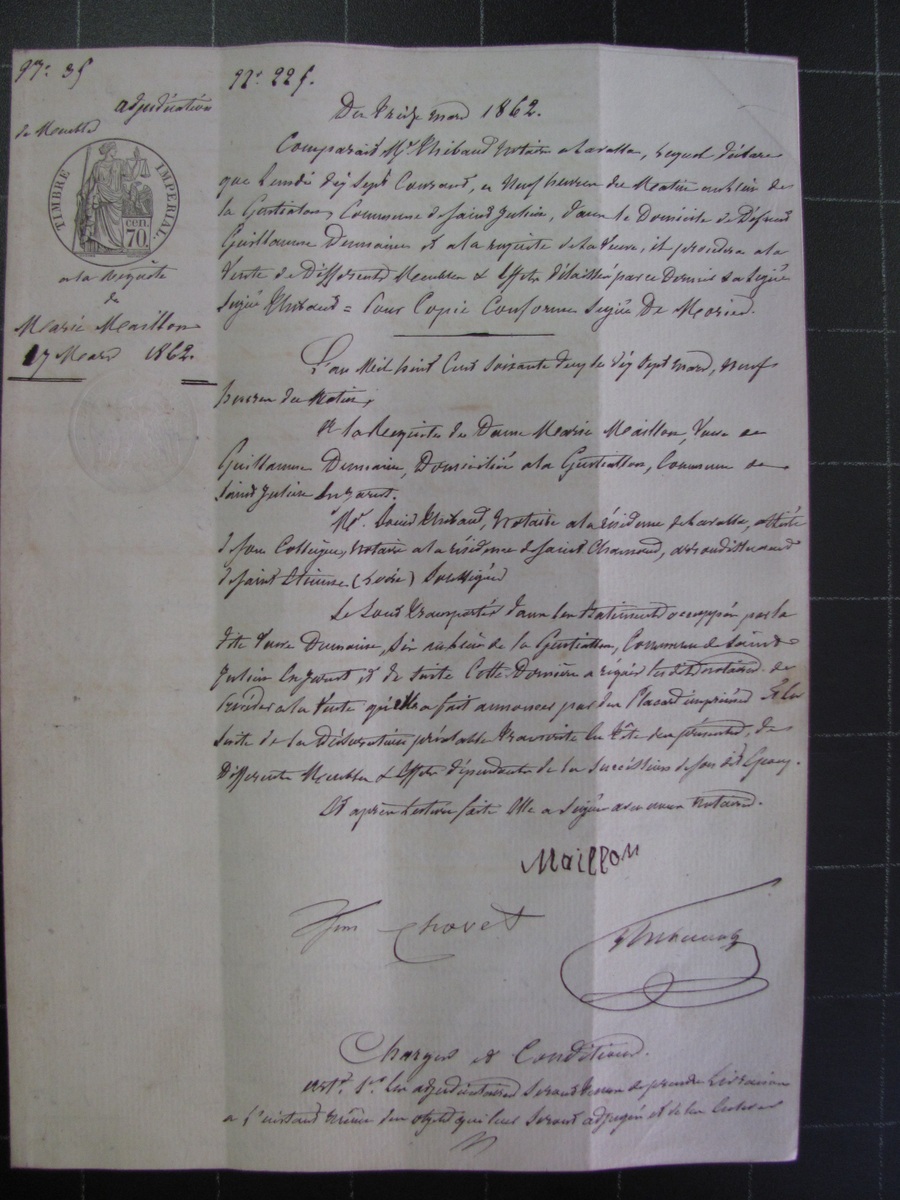 N° 35
adjudication
de Meubles
TIMBRE IMPERIAL
70 cen.
a la Requête
de
Marie Maillon
17 Mars 1862.
N° 225.
Du treize mars 1862.
Comparait Me Thibaud Notaire a Lavalla, lequel déclare
que Lundi dix Sept Courant, a Neuf heures du Matin au lieu de
la Commune de Saint Julien, dans le Domicile de Défunt
Guillaume Dumaine et a la requête de la Veuve, il procédera a la
Vente de Différents Meubles & Effets délaissés par ce Dernier
Signé Thibaud = Pour Copie Conforme Signé De
L'an Mil huit Cent Soixante deux le dix Sept mars, Neuf
heures du Matin,
A la Requête de Dame Marie Maillon, Veuve de
Guillaume Dumaine, Domiciliée a la Commune de
Saint Julien En Jarret.
Me. Louis Thibaud, Notaire a la résidence de Lavalla, assisté
de son Collègue, Notaire a la résidence de Saint Chamond, arrondissement
de Saint Etienne (Loire) Soussignés
Se Sont transportés dans les Batiments occuppés par la
dite Veuve Dumaine, Sis au lieu de la Commune de Saint
Julien En Jarret et de suite Cette Dernière a requis les dits notaires de
procéder a la Vente qu'elle a fait annoncer par des Placards imprimés Et la
suite de la Déclaration préalable transcrite En tête des présentes, de
Différents Meubles & Effets dépendants de la Succession de son dit Epoux.
Et après Lecture faite Elle a Signé avec nous Notaires.
Maillon
Chovet
Thibaud
Charges et Conditions.
art. 1er. Les adjudicataires Seront tenus de prendre Livraison
a l'instant même des objets qui leur Seront adjugés et de les